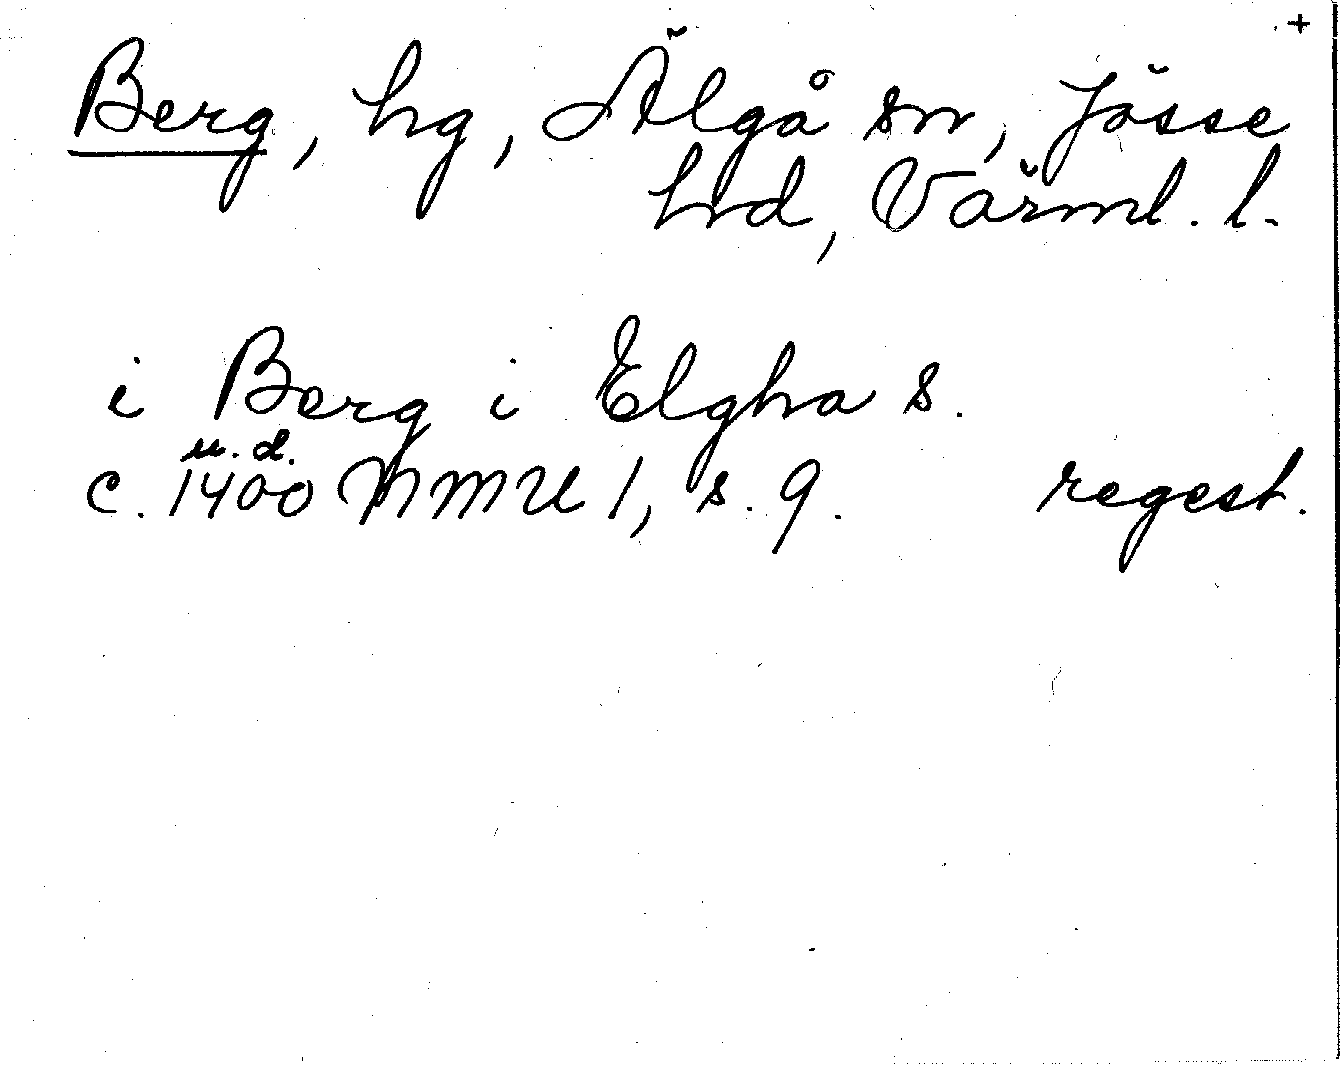 +
Berg, hg, Älgå sn, Jösse
hrd, Värml. l.
i Berg i Elgha s.
u.d.
c. 1400 NMU 1, s. 9. regest.